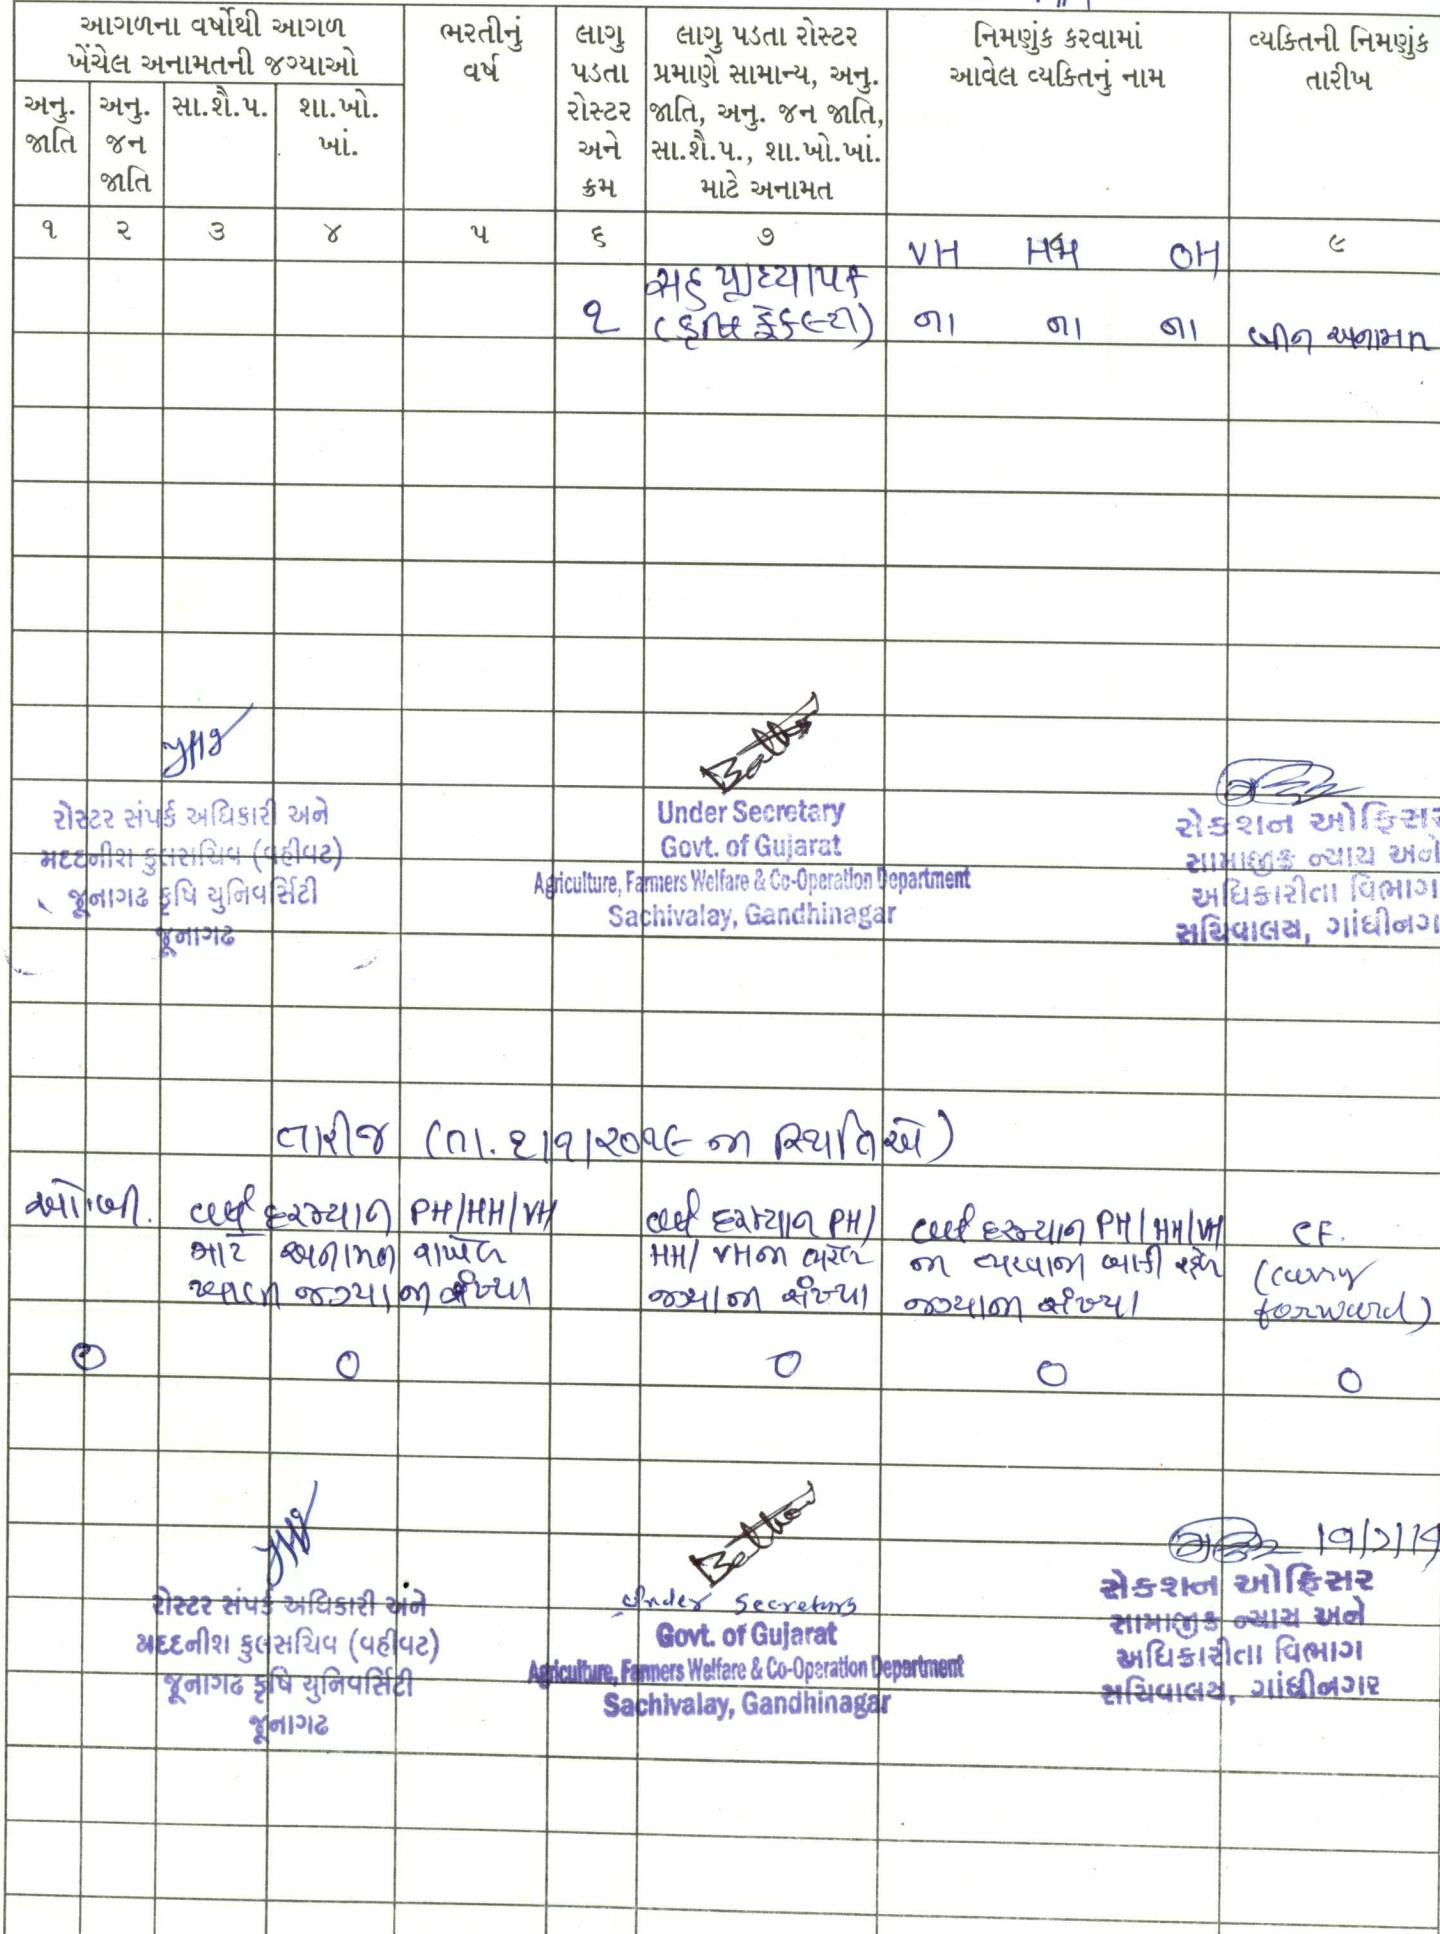 આગળના વર્ષોથી આગળ
ખેંચેલ અનામતની જગ્યાઓ
અનુ.
જાતિ
અનુ.
જન
જાતિ
સા.શૈ.પ.
શા.ખો.
ખાં.
ભરતીનું
વર્ષ
લાગુ
પડતા
રોસ્ટર
અને
ક્રમ
લાગુ પડતા રોસ્ટર
પ્રમાણે સામાન્ય, અનુ.
જાતિ, અનુ. જન જાતિ,
સા.શૈ.પ., શા.ખો.ખાં.
માટે અનામત
નિમણુંક કરવામાં
આવેલ વ્યક્તિનું નામ
વ્યકિતની નિમણુંક
તારીખ
૧ ૨ ૩ ૪ ૫ ૬ ૭ ૯
VH HH OH
સહ પ્રાધ્યાપક
૧ ના ના ના બીન અનામત
રોસ્ટર સંપર્ક અધિકારી અને
મદદનીશ કુલસચિવ (વહીવટ)
જૂનાગઢ કૃષિ યુનિવર્સિટી
જૂનાગઢ
Under Secretary
Govt. of Gujarat
Agriculture, Farmers Welfare & Co-Operation Department
Sachivalay, Gandhinagar
સેકશન ઓફિસર
સામાજીક ન્યાય અને
અધિકારીતા વિભાગ
સચિવાલય, ગાંધીનગ
તારીજ (તા. ૧/૧/૨૦૧૯ ના સ્થિતિએ)
ઓ.બી.
વર્ષ દરમ્યાન PH/HH/VH
માટે અનામત રાખેલ
ખાલી જગ્યાની સંખ્યા
વર્ષ દરમ્યાન PH/
HH/ VHના ભરેલ
જગ્યાના સંખ્યા
વર્ષ દરમ્યાન PH/HH/VH
ના ભરવાના બાકી રહેલ
જગ્યાના સંખ્યા
CF.
(carry
forward)
0 0 0 0 0
રોસ્ટર સંપર્ક અધિકારી અને
મદદનીશ કુલસચિવ (વહીવટ)
જૂનાગઢ કૃષિ યુનિવર્સિટી
જૂનાગઢ
Under Secretary
Govt. of Gujarat
Agriculture, Farmers Welfare & Co-Operation Department
Sachivalay, Gandhinagar
સેકશન ઓફિસર
સામાજીક ન્યાય અને
અધિકારીતા વિભાગ
સચિવાલય, ગાંધીનગર